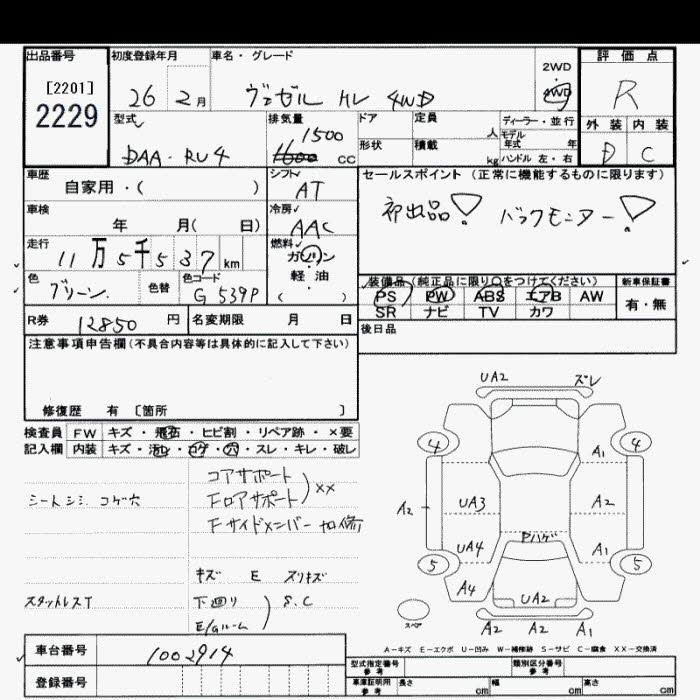 出品番号
[2201]
2229
初度登録年月
26 2月
車名・グレード
ヴェゼル HV 4WD
2WD
4WD
評価点
R
外装 内装
D C
型式
DAA-RU4
排気量
1500
1600 CC
ドア
定員
人
形状
積載
kg
ディーラー・並行
モデル
年式 年
ハンドル 左・右
車歴
自家用・( )
シフト
AT
セールスポイント (正常に機能するものに限ります)
初出品! バックモニター!
車検
年 月( 日)
冷房
AAC
走行
11万5千537km
燃料
ガソリン
軽・油
( )
色
グリーン
色替
色コード
G539P
装備品(純正品に限り○をつけてください)
PS PW ABS エアB AW
SR ナビ TV カワ
新車保証書
有・無
R券
12850円
名変期限 月 日
後日品
注意事項申告欄(不具合内容等は具体的に記入して下さい)
修復歴 有 〔箇所 〕
検査員
記入欄
FW キズ・飛石・ヒビ割・リペア跡・×要
内装 キズ・汚れ・コゲ・穴・スレ・キレ・破レ
コアサポート
Fロアサポート
××
Fサイドメンバー 加修
シートシミ コゲ穴
キズ E スリキズ
スタットレスT
下廻り
E/gルーム
S.C
UA2 ズレ
4 4
A1
A2 UA3 A2
Pハゲ
UA4 A1
5 5
A4
UA2
スペア
A2 A2 A1
A-キズ E-エクボ U-凹み W-補修跡 S-サビ C-腐食 XX-交換済
車台番号
1002914
登録番号
型式指定番号
参考
類別区分番号
参考
車庫証明用
参考
長さ cm
幅 cm
高さ cm